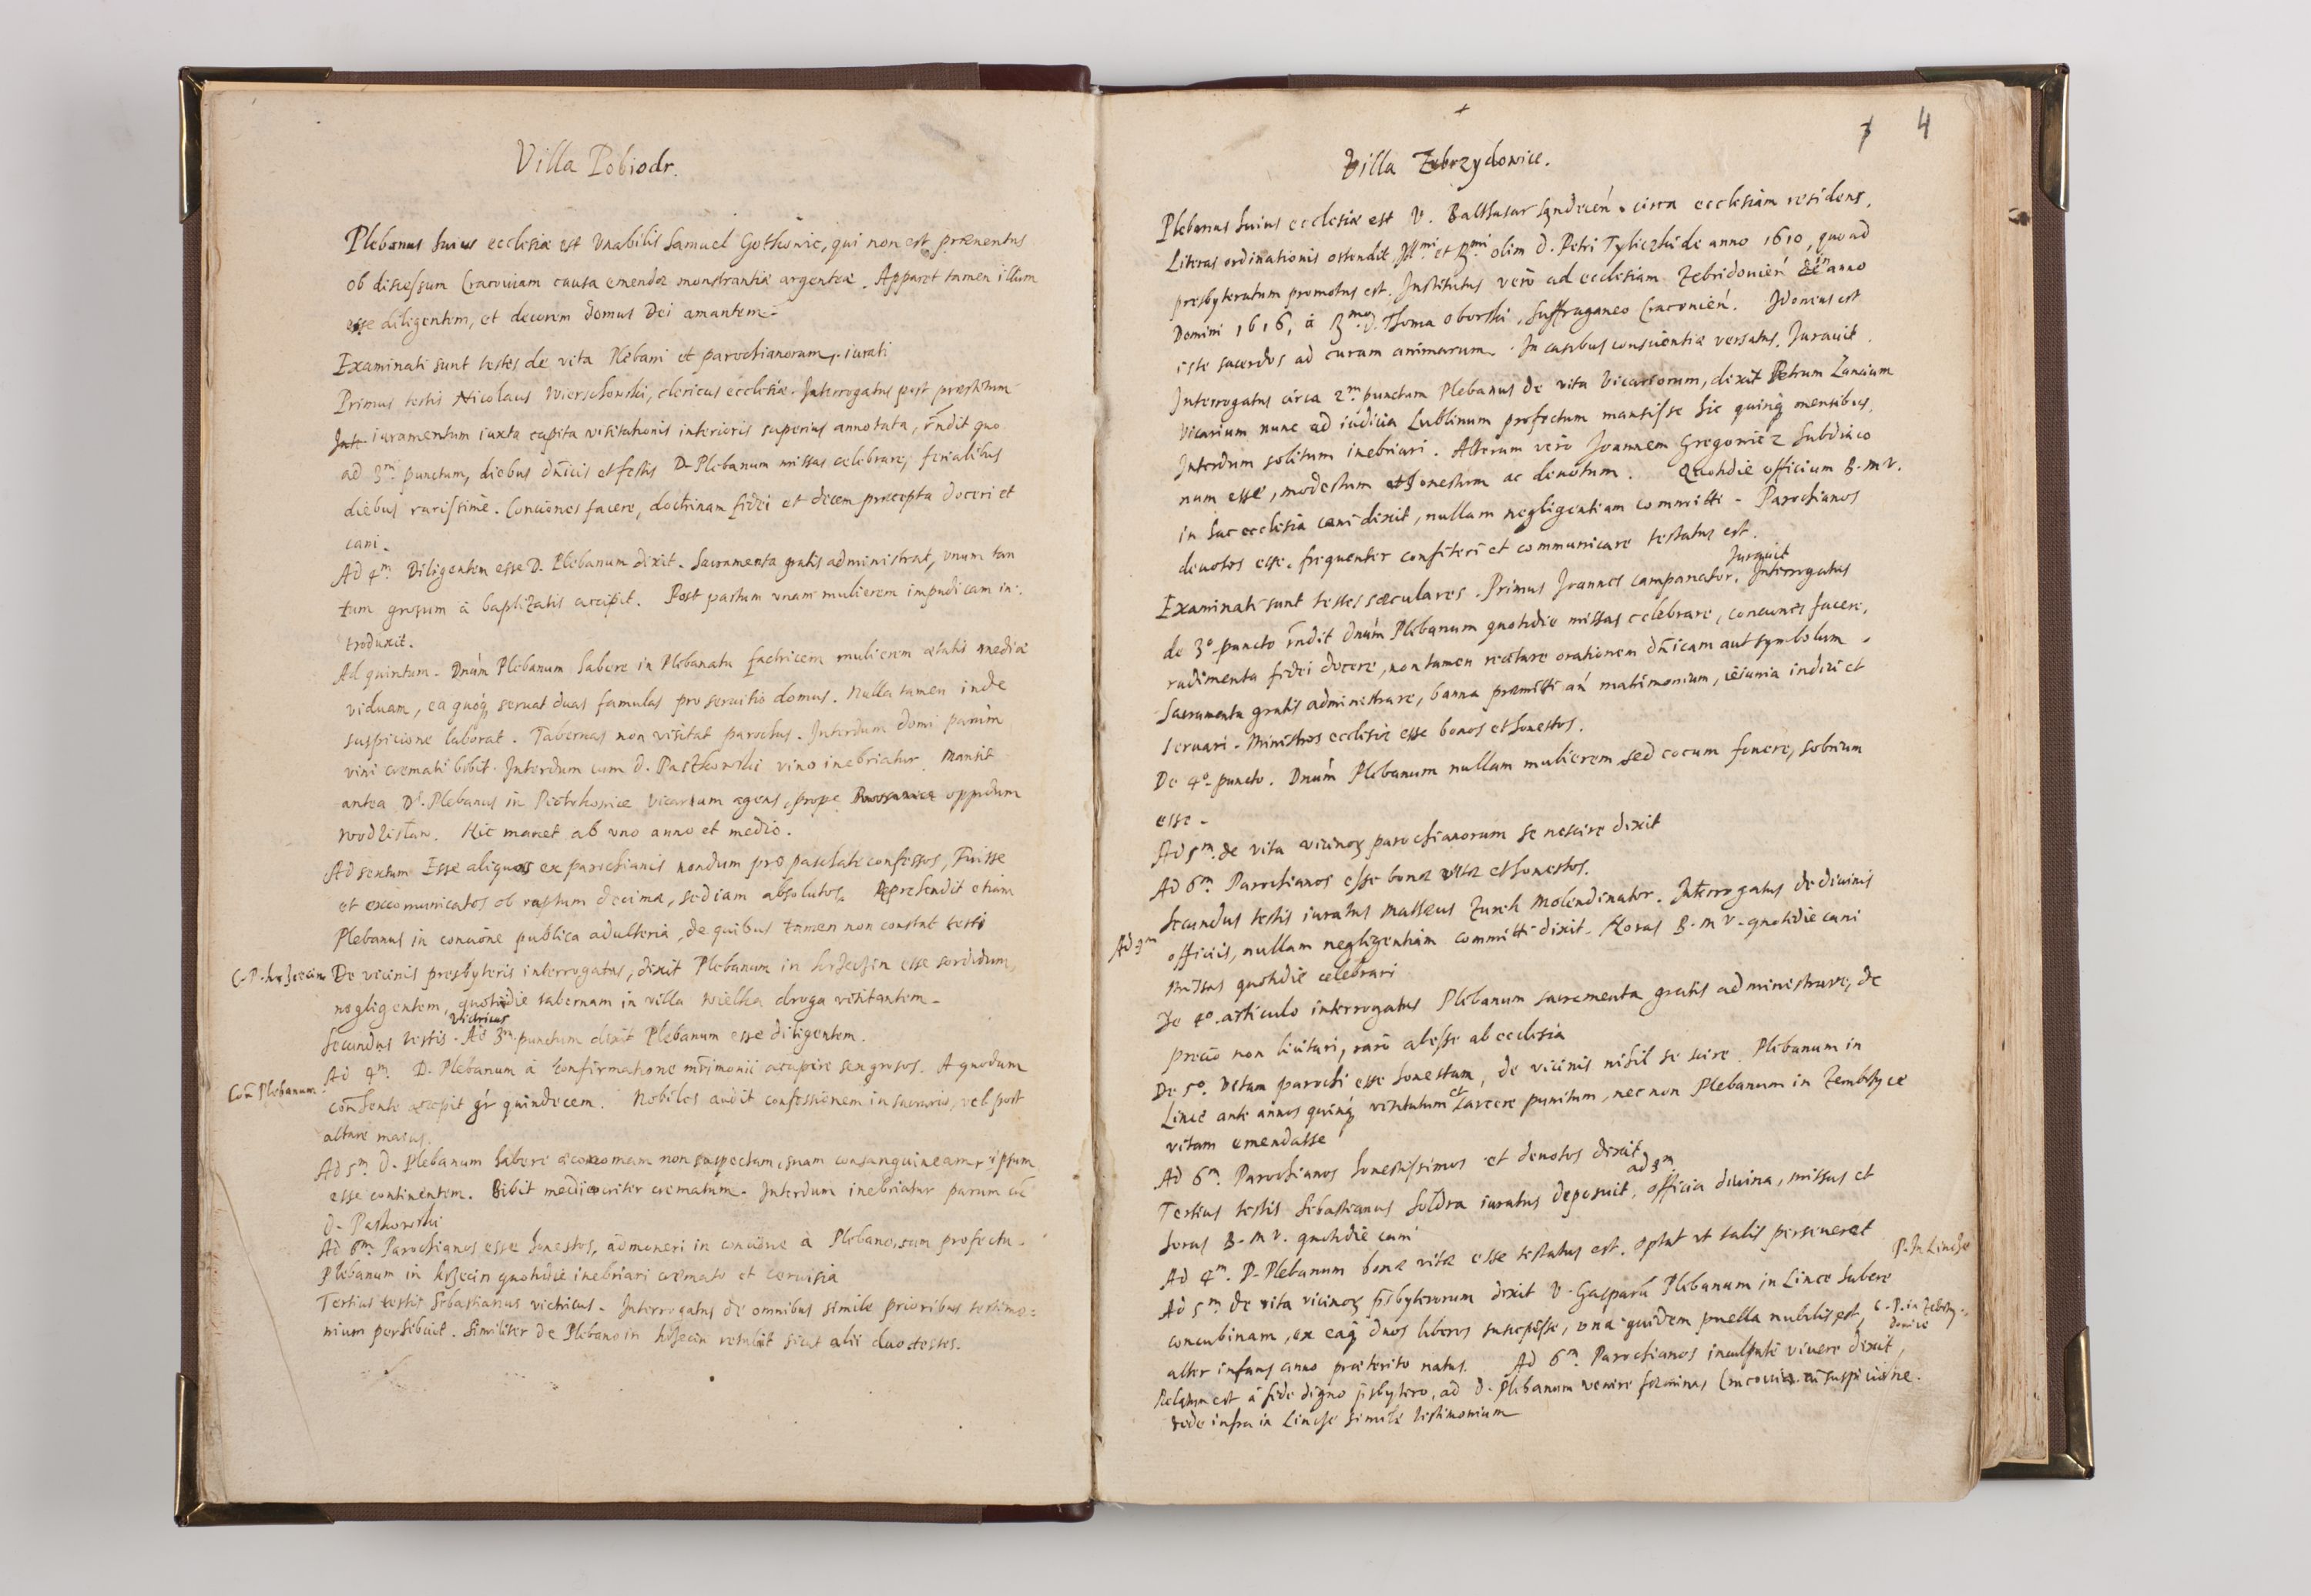 Villa Pobiodr.
Plebanus huius ecclesiæ est Vnabilis Samuel Gothonic, qui non est præuentus
ob discessum Cracouiam causa emendæ monstrantiæ argenteæ. Apparet tamen illum
esse diligentem, et decorem domus Dei amantem.
Examinati sunt testes de vita Plebani et parochianorum, iurati
Primus testis Nicolaus Wierschowski, clericus ecclesiæ. Interrogatus post præstitum
iuramentum iuxta capita visitationis interioris superius annotata, rñdit quo
ad 3m. punctum, diebus dñicis et festis D. Plebanum missas celebrare, ferialibus
diebus rarissimè. Conciones facere, doctrinam fidei et decem præcepta doceri et
cani.
Ad 4m. Diligentem esse D. Plebanum dixit. Sacramenta gratis administrat, vnum tan
tum grosum à baptizatis accipit. Post partum vnam mulierem impudicam in:
troduxit.
Ad quintum. Dnúm Plebanum habere in Plebanatu factricem mulierem ætatis mediæ
viduam, ea quoq seruat duas famulas pro seruitio domus. Nulla tamen inde
suspicione laborat. Tabernas non visitat parochus. Interdum domi parùm
vini cremati bibit. Interdum cum d. Paszkowski vino inebriatur. Mansit
antea Ds. Plebanus in Pietrkowice vicarium agens, prope oppidum
wodzisław. Hic manet ab vno anno et medio.
Ad sextum Esse aliquos ex parochianis nondum pro paschate confessos, Fuisse
et excomunicatos ob raptum decimæ, sed iam absolutos. Reprehendit etiam
Plebanus in concione publica adulteria, de quibus tamen non constat testi
C. P. krzecin De vicinis presbyteris interrogatus, dixit Plebanum in krzecin esse sordidum,
negligentem, quotidie tabernam in villa wielka droga visitantem.
Victricus
Secundus testis. Ad 3m. punctum dixit Plebanum esse diligentem.
Ad 4m. D. Plebanum à confirmatione mrimonii accipere sen grosos. A quodam
Con Plebanum. accepit gr quindecem. Nobiles audit confessionem in sacrario, vel post
altare maius.
Ad 5m. D. Plebanum habere œconomam non suspectam, suam consanguineam, ipsum
esse continentem. Bibit mediocriter crematum. Interdum inebriatur parum cũ
d. Paskowski
Ad 6m. Parochianos esse honestos, admoneri in concione à Plebano, cum profectu.
Plebanum in krzecin quotidie inebriari cremato et ceruisia
Tertius testis Sebastianus victricus. Interrogatus de omnibus simile prioribus testimo=
nium perhibuit. Similiter de Plebano in krzecin retulit sicut alii duo testes.
4
Villa Zebrzydowice.
Plebanus huius ecclesiæ est V. Balthasar Sandecen. circa ecclesiam residens.
Literas ordinationis ostendit Illmi. et Rmi. olim D. Petri Tyliczki de anno 1610, quo ad
presbyteratum promotus est. Institutus verò ad ecclesiam Zebridouien anno
Domini 1616, à Rmo. D. Thoma Oborski, Suffraganeo Cracouien. Idoneus est
iste sacerdos ad curam animarum. In casibus conscientiæ versatus. Jurauit.
Interrogatus circa 2m. punctum Plebanus de vita Vicariorum, dixit Petrum Zancium
Vicarium nunc ad iudicia Lublinum profectum mansisse hic quinq mensibus,
Interdum solitum inebriari. Alterum verò Joannem Gregowicz Subdiaco
num esse, modestum et honestum ac deuotum. Quotidie officium B. M V.
in hac ecclesia cani dixit, nullam negligentiam committi. Parochianos
deuotos esse, frequenter confiteri et communicare testatus est.
Jurauit
Examinati sunt testes sæculares. Primus Joannes campanator. Interrogatus
de 3o. puncto rñdit dnúm Plebanum quotidie missas celebrare, conciones facere,
rudimenta fidei docere, non tamen recitare orationem dñicam aut symbolum.
Sacramenta gratis administrare, banna præmitti añ matrimonium, ieiunia indici et
seruari. Ministros ecclesiæ esse bonos et honestos.
De 4o. puncto. Dnúm Plebanum nullam mulierem sed cocum fouere, sobrium
esse.
Ad 5m. de vita vicinorum parochianorum se nescire dixit
Ad 6m. Parochianos esse bonæ vitæ et honestos.
Secundus testis iuratus Mattheus Zurek Molendinator. Interrogatus de diuinis
Ad 3m officiis, nullam negligentiam committi dixit. Horas B. M V. quotidie cani
missas quotidie celebrari
De 4o. articulo interrogatus Plebanum sacramenta gratis administrare, de
precio non licitari, rarò abesse ab ecclesia
De 5o. Vitam parochi esse honestam, de vicinis nihil se scire. Plebanum in
Lince ante annos quinq visitatum et carcere punitum, nec non Plebanum in Zembrzyce
vitam emendasse
Ad 6m. Parochianos honestissimos et deuotos dixit
ad 3m
Tertius testis Sebastianus Soldra iuratus deposuit, officia diuina, missas et
horas B. M V. quotidie cani
Ad 4m. D. Plebanum bonæ vitæ esse testatus est. optat vt talis perseueret
P. In Lincze
Ad 5m. de vita vicinorum psbyterorum dixit V. Gasparũ Plebanum in Lince habere
concubinam, ex eaq duos liberos suscepisse, vna quidem puella nubilis est,
C. P. in Zebrzy
dowice
alter infans anno præterito natus. Ad 6m. Parochianos inculpatè viuere dixit,
Relatum est à fide digno psbytero, ad d. Plebanum venire fœminas Cracouia cũ suspicione.
vide infra in Lincze simile testimonium